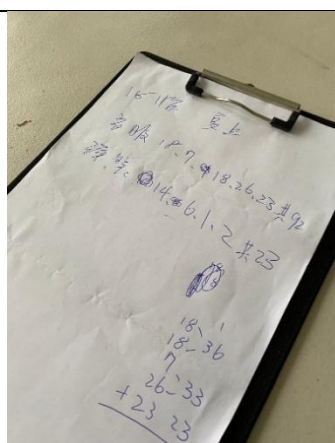 16-18号 夏上
衣服 18.7.18.26.23共92
裤 14.6.1.2共23
18、1
18-36
7
26-33
+23 23